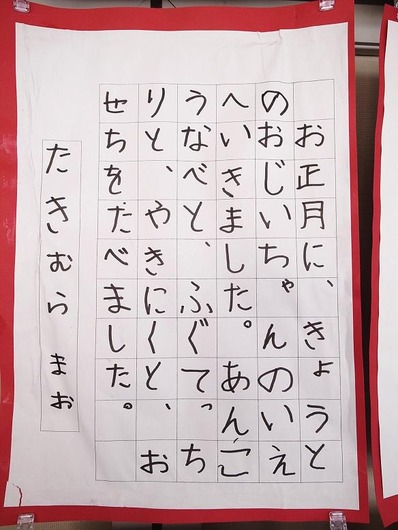 お正月に、きょうと
のおじいちゃんのいえ
へいきました。あんこ
うなべと、ふぐてっち
りと、やきにくと、お
せちをたべました。
たきむら まお